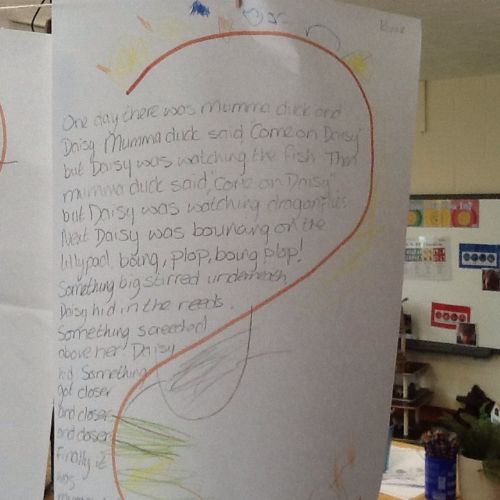 One day there was Mumma duck and
Daisy. Mumma duck said "Come on Daisy"
but Daisy was watching the fish. Then
mumma duck said, "Come on Daisy"
but Daisy was watching dragonflies.
Next Daisy was bouncing on the
lillypad, boing, plop, boing plop!
Something big stirred underneath
Daisy hid in the reeds.
Something screeched
above her Daisy
hid. Something
got closer
and closer
and closer
Finally it
was